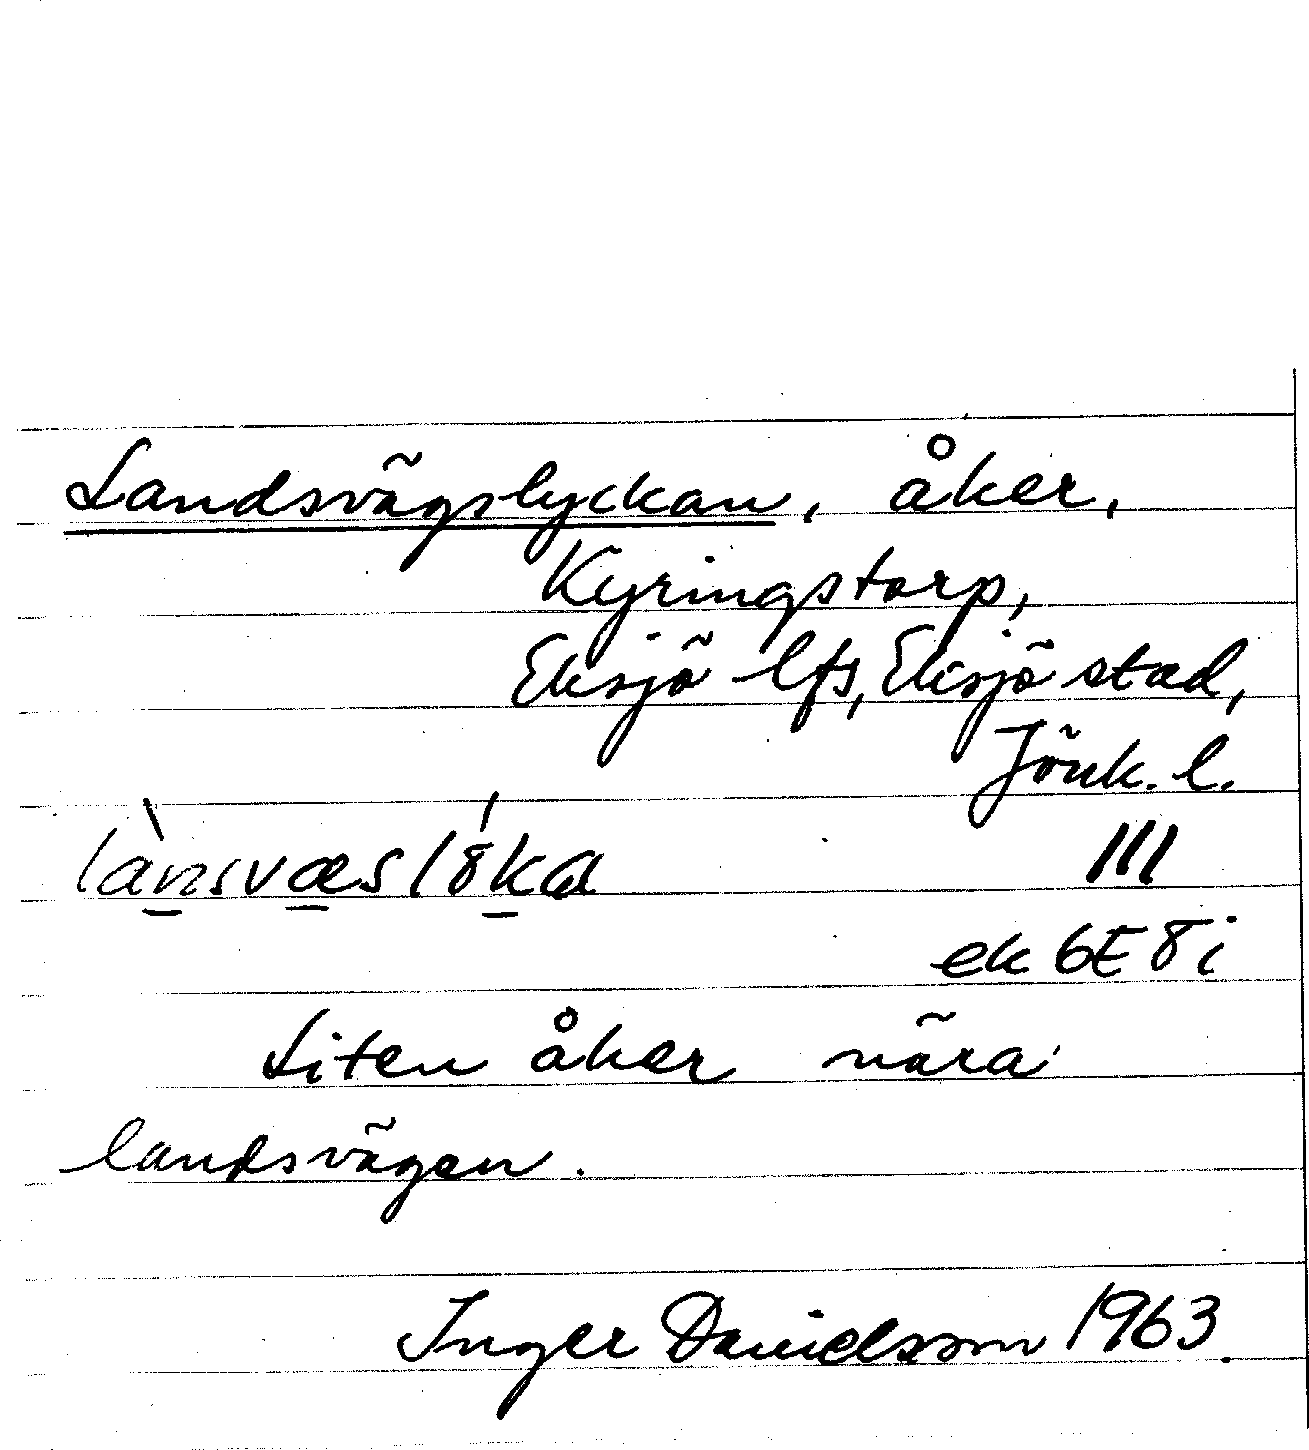 Landsvägslyckan, åker,
Kyringstorp,
Eksjö lfs, Eksjö stad,
Jönk. l.
lànsvæslö́ka III
ek 6E 8i
Liten åker nära
landsvägen.
Inger Danielsson 1963.